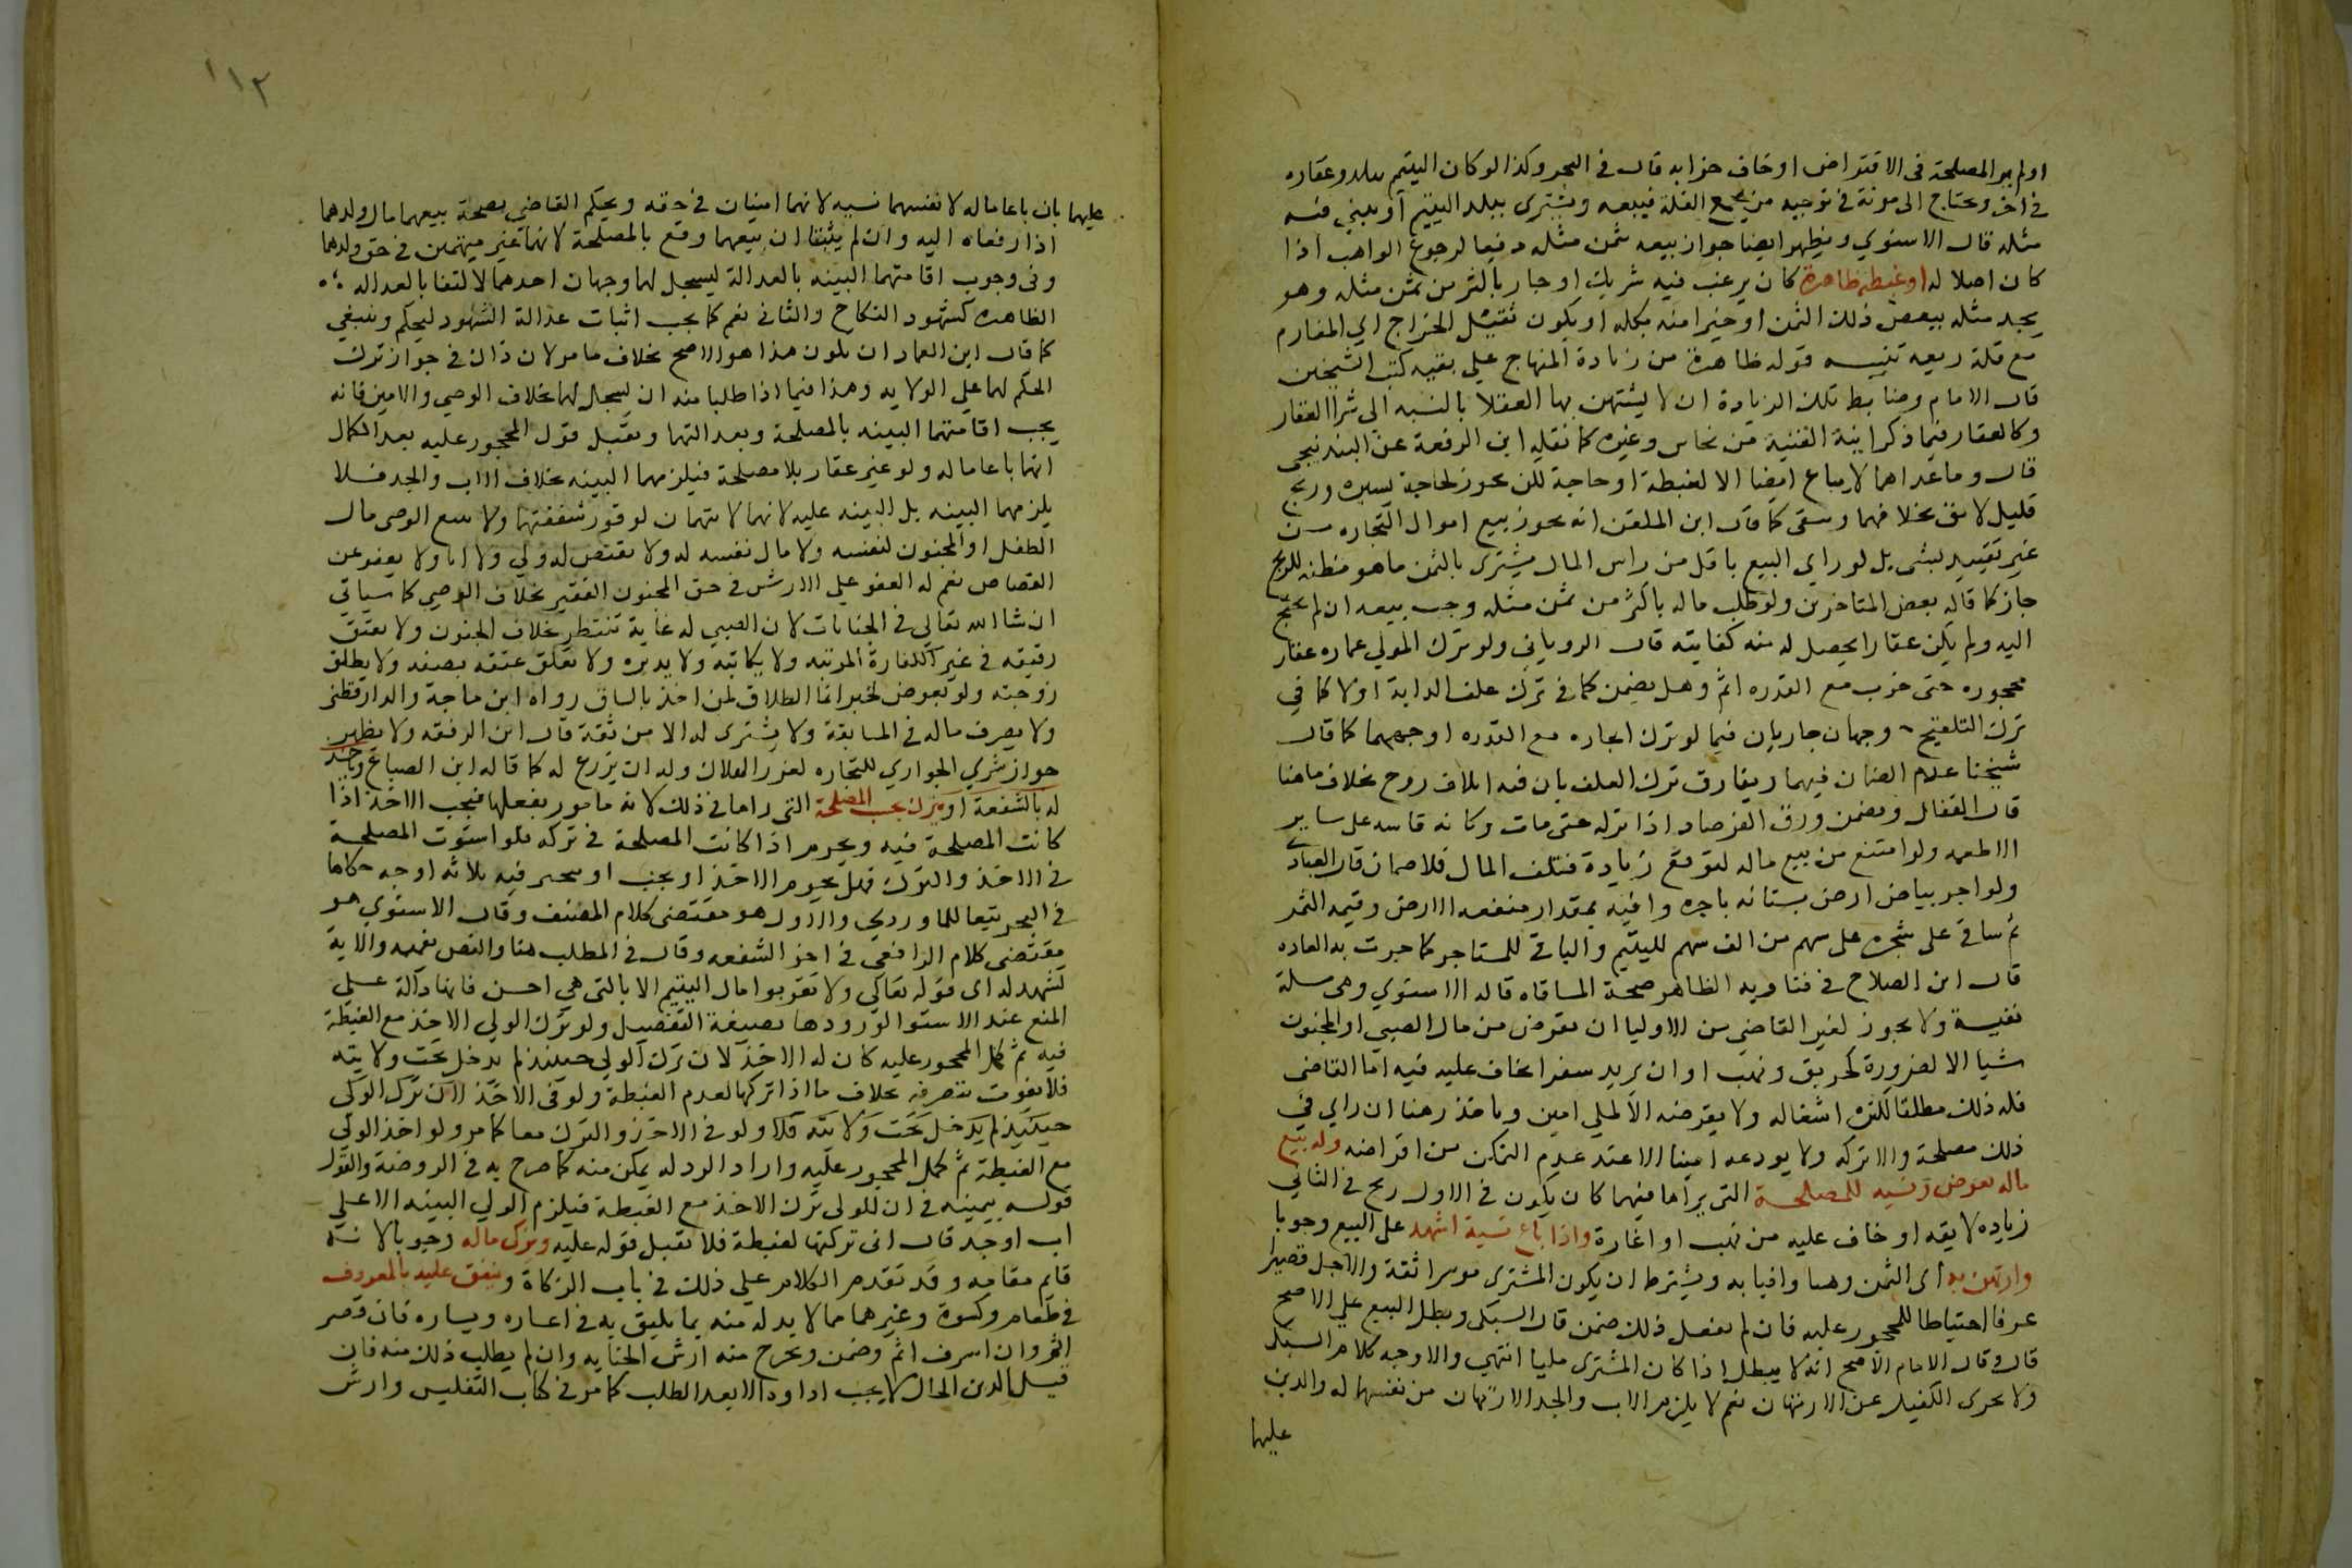 اولم ير المصلحة فى الاقتراض او خاف خرابه قال فى البحر وكذا لو كان اليتيم ببلد وعقاره
فى اخر ويحتاج الى مونة فى توجيه من يجمع الغلة فيبيعه ويشترى ببلد اليتيم او يبني فيه
مثله قال الاسنوي ويظهر ايضا جواز بيعه بثمن مثله دفعا لرجوع الواهب اذا
كان اصلا له او غبطة ظاهرة كان يرغب فيه شريك او جار باكثر من ثمن مثله وهو
يجد مثله ببعض ذلك الثمن او خيرا منه بكله او يكون ثقيل الخراج اي المغارم
مع قلة ريعه تنبيه قوله ظاهرة من زيادة المنهاج علي بقيه كتب الشيخين
قال الامام وضابط تلك الزيادة ان لا يستهين بها العقلا بالنسبه الي شرا العقار
وكالعقار فيما ذكر انية القنية من نحاس وغيره كما نقله ابن الرفعة عن البندنيجي
قال وما عداهما لا يباع ايضا الا لغبطة او حاجة لكن يجوز لحاجة يسيره وربح
قليل لائق بخلافهما وينبغي كما قال ابن الملقن انه يجوز بيع اموال التجاره من
غير تقييد بشي بل لو راي البيع باقل من راس المال ليشترى بالثمن ما هو مظنه للربح
جاز كما قاله بعض المتاخرين ولو طلب ماله باكثر من ثمن مثله وجب بيعه ان لم يحتج
اليه ولم يكن عقارا يحصل له منه كفايته قال الروياني ولو ترك الولي عماره عقار
محجوره حتى خرب مع القدره اثم وهل يضمن كما فى ترك علف الدابة او لا كما في
ترك التلقيح وجهان جاريان فيما لو ترك ايجاره مع القدره اوجههما كما قال
شيخنا عدم الضمان فيهما ويفارق ترك العلف بان فيه اتلاف روح بخلاف ما هنا
قال القفال ويضمن ورق الفرصاد اذا تركه حتى مات وكانه قاسه على ساير
الاطعمه ولو امتنع من بيع ماله لتوقع زيادة فتلف المال فلا ضمان قال العبادي
ولو اجر بياض ارض بستانه باجره وافيه بمقدار منفعه الارض وقيمه الثمر
ثم ساقى على شجره على سهم من الف سهم لليتيم والباقى للمستاجر كما جرت به العاده
قال ابن الصلاح فى فتاويه الظاهر صحة المساقاه قاله الاسنوي وهى مسلة
نفيسة ولا يجوز لغير القاضي من الاوليا ان يقرض من مال الصبي او المجنون
شيا الا لضرورة كحريق ونهب او ان يريد سفرا يخاف عليه فيه اما القاضى
فله ذلك مطلقا لكثره اشغاله ولا يقرضه الا لملي امين وياخذ رهنا ان راي في
ذلك مصلحة والا تركه ولا يودعه امينا الا عند عدم التمكن من اقراضه وله بيع
ماله بعرض ونسيه للمصلحة التي يراها فيهما كان يكون فى الاول ربح فى الثاني
زياده لائقه او خاف عليه من نهب او اغارة واذا باع نسية اشهد على البيع وجوبا
وارتهن به اى الثمن رهنا وافيا به ويشترط ان يكون المشترى موسرا ثقة والاجل قصيرا
عرفا احتياطا للمحجور عليه فان لم يفعل ذلك ضمن قال السبكى وبطل البيع على الاصح
قال وقال الامام الاصح انه لا يبطل اذا كان المشترى مليا انتهي والاوجه كلام السبكى
ولا يجزى الكفيل عن الارتهان نعم لا يلزم الاب والجد الارتهان من نفسهما له والدين
عليهما
١١٢
عليهما بان باعا ماله لانفسهما نسيه لانهما امينان فى حقه ويحكم القاضي بصحة بيعهما مال ولدهما
اذا رفعاه اليه وان لم يثبتا ان بيعهما وقع بالمصلحة لانهما غير متهمين فى حق ولدهما
وفى وجوب اقامتهما البينه بالعدالة ليسجل لهما وجهان احدهما لا اكتفا بالعداله
الظاهره كشهود النكاح والثانى نعم كما يجب اثبات عدالة الشهود ليحكم وينبغي
كما قال ابن العماد ان يكون هذا هو الاصح بخلاف ما مر لان ذاك فى جواز ترك
الحكم لهما على الولايه وهذا فيما اذا طلبا منه ان يسجل لهما بخلاف الوصي والامين فانه
يجب اقامتهما البينه بالمصلحة وبعدالتهما ويقبل قول المحجور عليه بعد الكمال
انهما باعا ماله ولو غير عقار بلا مصلحة فيلزمهما البينه بخلاف الاب والجد فلا
يلزمهما البينه بل البينه عليه لانهما لا يتهمان لوفور شفقتهما ولا يبيع الوصى مال
الطفل او المجنون لنفسه ولا مال نفسه له ولا يقتص له ولي ولا ابا ولا يعفو عن
القصاص نعم له العفو على الارش فى حق المجنون الفقير بخلاف الوصي كما سياتى
ان شا الله تعالي فى الجنايات لان الصبي له غاية تنتظر بخلاف المجنون ولا يعتق
رقيقه فى غير الكفارة المرتبه ولا يكاتبه ولا يدبره ولا يعلق عتقه بصفه ولا يطلق
زوجته ولو بعوض لخبر انما الطلاق لمن اخذ بالساق رواه ابن ماجة والدارقطنى
ولا يصرف ماله فى المسابقة ولا يشترى له الا من ثقة قال ابن الرفعه ولا يظهر
جواز شري الجواري للتجاره لغرر الهلاك وله ان يزرع له كما قاله ابن الصباغ وياخذ
له بالشفعة او يترك بحسب المصلحة التى راها فى ذلك لانه مامور بفعلها فيجب الاخذ اذا
كانت المصلحة فيه ويحرم اذا كانت المصلحة فى تركه فلو استوت المصلحة
فى الاخذ والترك فهل يحرم الاخذ او يجب او يتخير فيه ثلاثه اوجه حكاها
فى البحر تبعا للماوردي والاول هو مقتضى كلام المصنف وقال الاسنوي هو
مقتضى كلام الرافعي فى اخر الشفعه وقال فى المطلب هنا والنص يفهمه والاية
تشهد له اى قوله تعالي ولا تقربوا مال اليتيم الا بالتى هي احسن فانها دالة على
المنع عند الاستوا لورودها بصيغة التفضيل ولو ترك الولي الاخذ مع الغبطة
فيه ثم كمل المحجور عليه كان له الاخذ لان ترك الولي حينئذ لم يدخل تحت ولايته
فلا يفوت بتصرفه بخلاف ما اذا تركها لعدم الغبطة ولو فى الاخذ لان ترك الولى
حينئذ لم يدخل تحت ولايته فلا ولو فى الاخذ والترك معا كما مر ولو اخذ الولي
مع الغبطة ثم كمل المحجور عليه واراد الرد لم يمكن منه كما صرح به فى الروضة والقول
قوله بيمينه فى ان للولى ترك الاخذ مع الغبطة فيلزم الولي البينه الا على
اب او جد قال انى تركتها لغبطة فلا تقبل قوله عليه ويزكى ماله وجوبا لانه
قايم مقامه وقد تقدم الكلام علي ذلك فى باب الزكاة وينفق عليه بالمعروف
فى طعام وكسوة وغيرهما مما لا بد له منه بما يليق به فى اعساره ويساره فان قصر
اثم وان اسرف اثم وضمن ويخرج منه ارش الجنايه وان لم يطلب ذلك منه فان
قيل الدين الحال لا يجب اداوه الا بعد الطلب كما مر فى كتاب التفليس وارش